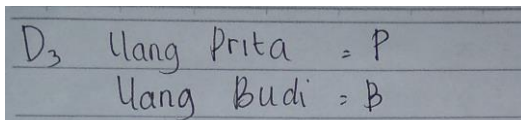 D₃ Uang Prita = P
Uang Budi = B